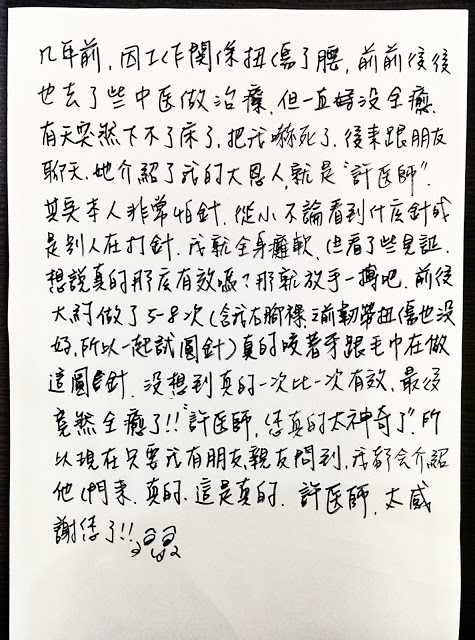 几年前，因工作關係扭傷了腰，前前後後
也去了些中医做治療，但一直好没全癒，
有天突然下不了床了，把我嚇死了，後来跟朋友
聊天，她介紹了我的大恩人，就是"許医師"．
其实本人非常怕針，從小不論看到什庅針或
是別人在打針，我就全身癱軟，但看了些見証，
想說真的那庅有效嗎？那就放手一搏吧．前後
大約做了5-8次（含我右腳裸之前韌帶扭傷也没
好，所以一起試圓針）真的咬著牙跟毛巾在做
這圓針，没想到真的一次比一次有效，最後
竟然全癒了!!"許医師，您真的太神奇了"．所
以現在只要我有朋友，親友問到，我都会介紹
他們来．真的，這是真的．許医師，太感
謝您了!!